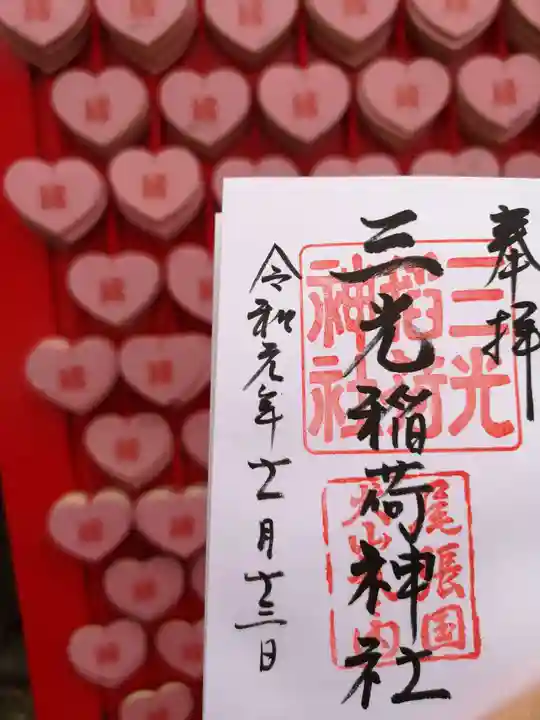 奉拝
三光稲荷神社
令和元年十一月十三日
三光
稲荷
神社
尾張国
犬山城内